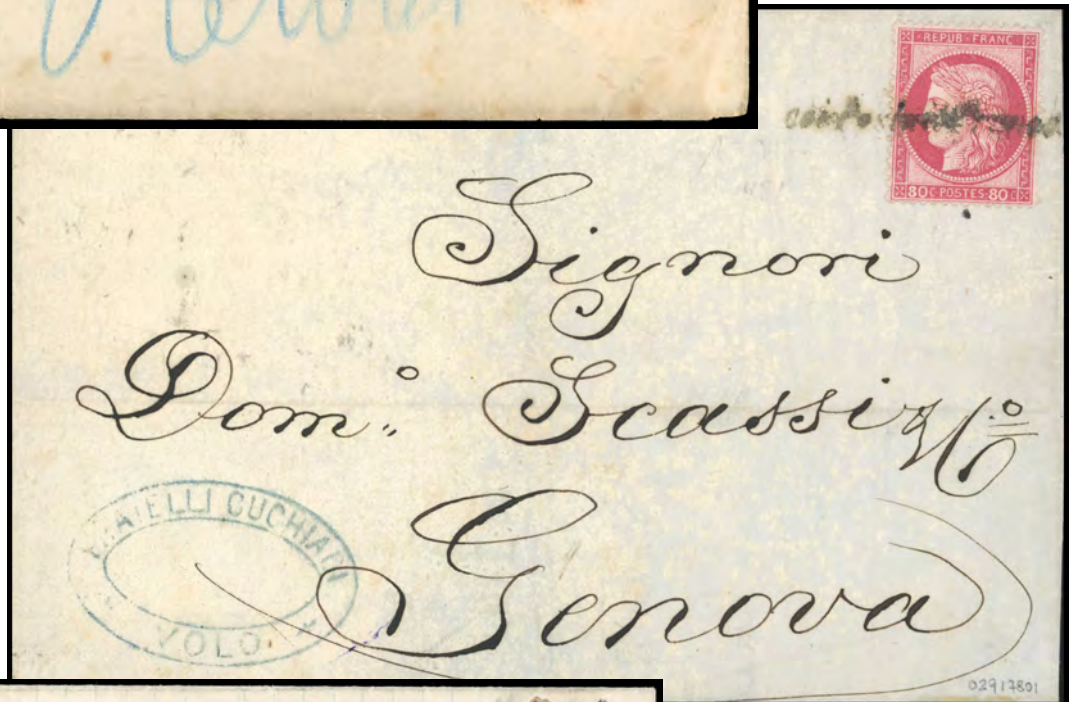 REPUB FRANC
80 C POSTES 80 C
Signori
Dom.° Scassi & C.°
Genova
FRATELLI CUCHIARI
VOLO
02917801